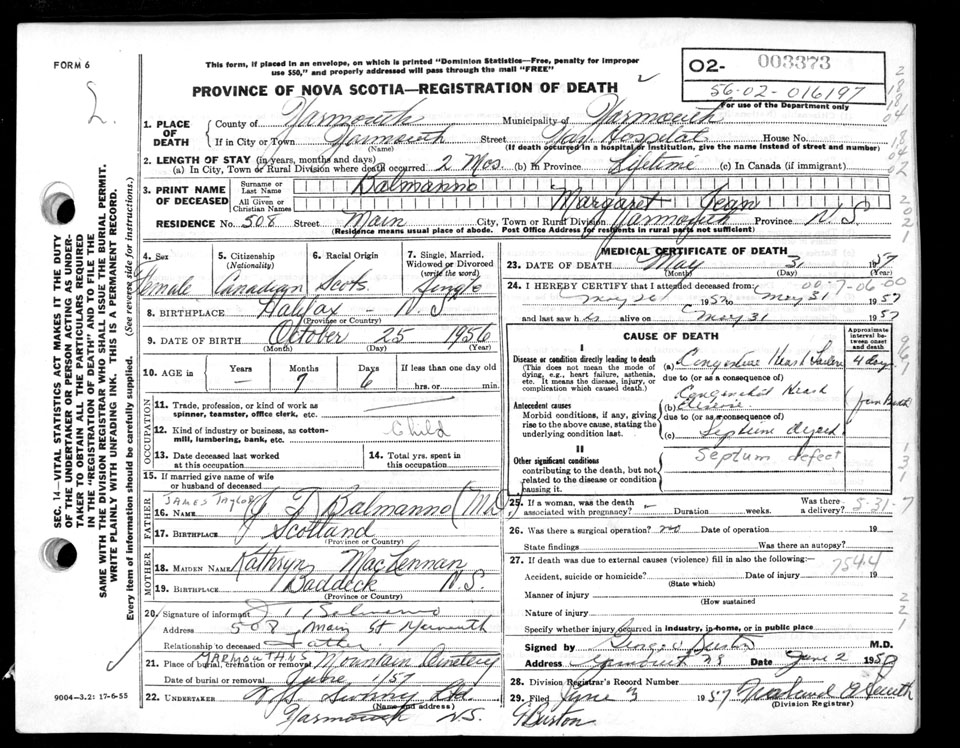 FORM 6
This form, if placed in an envelope, on which is printed "Dominion Statistics—Free, penalty for improper
use $50," and properly addressed will pass through the mail "FREE"
PROVINCE OF NOVA SCOTIA—REGISTRATION OF DEATH
O2- 003373
56-02-016197
For use of the Department only
1. PLACE OF DEATH
County of Yarmouth Municipality of Yarmouth
If in City or Town Yarmouth Street Yar. Hospital House No.
(Name) (If death occurred in a hospital or institution, give the name instead of street and number)
2. LENGTH OF STAY (in years, months and days)
(a) In City, Town or Rural Division where death occurred 2 Mos. (b) In Province Lifetime (c) In Canada (if immigrant)
3. PRINT NAME OF DECEASED
Surname or Last Name Balmanno
All Given or Christian Names Margaret Jean
RESIDENCE No. 508 Street Main City, Town or Rural Division Yarmouth Province N.S
(Residence means usual place of abode. Post Office Address for residents in rural parts not sufficient)
4. Sex Female
5. Citizenship (Nationality) Canadian
6. Racial Origin Scots
7. Single, Married, Widowed or Divorced (write the word) Single
8. BIRTHPLACE Halifax - N.S
(Province or Country)
9. DATE OF BIRTH October 25 1956
(Month) (Day) (Year)
10. AGE in Years — Months 7 Days 6 If less than one day old
hrs. or min.
OCCUPATION
11. Trade, profession, or kind of work as spinner, teamster, office clerk, etc.
12. Kind of industry or business, as cotton-mill, lumbering, bank, etc. Child
13. Date deceased last worked at this occupation
14. Total yrs. spent in this occupation
15. If married give name of wife or husband of deceased
FATHER
James Taylor
16. NAME J T Balmanno (MD)
17. BIRTHPLACE Scotland
(Province or Country)
MOTHER
18. MAIDEN NAME Kathryn MacLennan
19. BIRTHPLACE Baddeck N.S.
(Province or Country)
20. Signature of informant Balmanno
Address 508 Main St Yarmouth
Relationship to deceased Father
21. Place of burial, cremation or removal Mountain Cemetery
YARMOUTH N.S
Date of burial or removal June 1/57
22. UNDERTAKER Sweeny Ltd.
(Name and address)
Yarmouth N.S.
9004—3.2: 17-6-55
MEDICAL CERTIFICATE OF DEATH
23. DATE OF DEATH May 31 1957
(Month) (Day) (Year)
24. I HEREBY CERTIFY that I attended deceased from
May 26 1957 to May 31 1957
and last saw h alive on May 31 1957
CAUSE OF DEATH
Approximate interval between onset and death
I
Disease or condition directly leading to death
(This does not mean the mode of dying, e.g., heart failure, asthenia, etc. It means the disease, injury, or complication which caused death.)
(a) Congestive Heart Failure 4 days
due to (or as a consequence of)
Antecedent causes
Morbid conditions, if any, giving rise to the above cause, stating the underlying condition last.
Congenital Heart
(b) Disease from Birth
due to (or as a consequence of)
(c) Septum
II
Other significant conditions
contributing to the death, but not related to the disease or condition causing it.
Septum defect
25. If a woman, was the death associated with pregnancy? — Duration weeks. Was there a delivery?
5-31-7
26. Was there a surgical operation? no Date of operation 19
State findings Was there an autopsy?
27. If death was due to external causes (violence) fill in also the following:—
754.4
Accident, suicide or homicide? Date of injury 19
(State which)
Manner of injury
(How sustained
Nature of injury
Specify whether injury occurred in industry, in home, or in public place
Signed by M.D.
Address Yarmouth NS Date June 2 195
28. Division Registrar's Record Number
29. Filed June 3 1957
(Division Registrar)
G Burton
SEC. 14—VITAL STATISTICS ACT MAKES IT THE DUTY
OF THE UNDERTAKER OR PERSON ACTING AS UNDER-
TAKER TO OBTAIN ALL THE PARTICULARS REQUIRED
IN THE "REGISTRATION OF DEATH" AND TO FILE THE
SAME WITH THE DIVISION REGISTRAR WHO SHALL ISSUE THE BURIAL PERMIT.
WRITE PLAINLY WITH UNFADING INK. THIS IS A PERMANENT RECORD.
Every item of information should be carefully supplied. (See reverse side for instructions.)